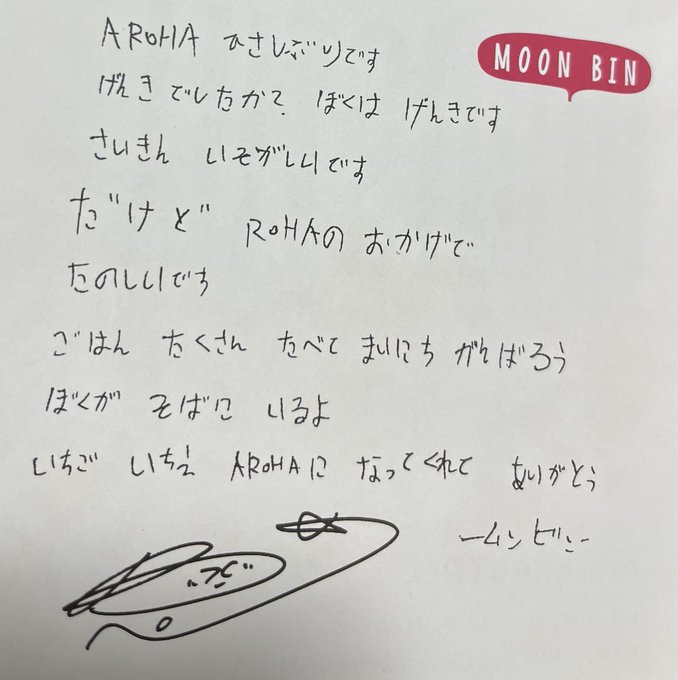 AROHA ひさしぶりです
MOON BIN
げんきでしたか? ぼくは げんきです
さいきん いそがしいです
だけど ROHAの おかげで
たのしいでち
ごはん たくさん たべて まいにち がんばろう
ぼくが そばに いるよ
いちご いちえ AROHAに なってくれて ありがとう
ームンビンー